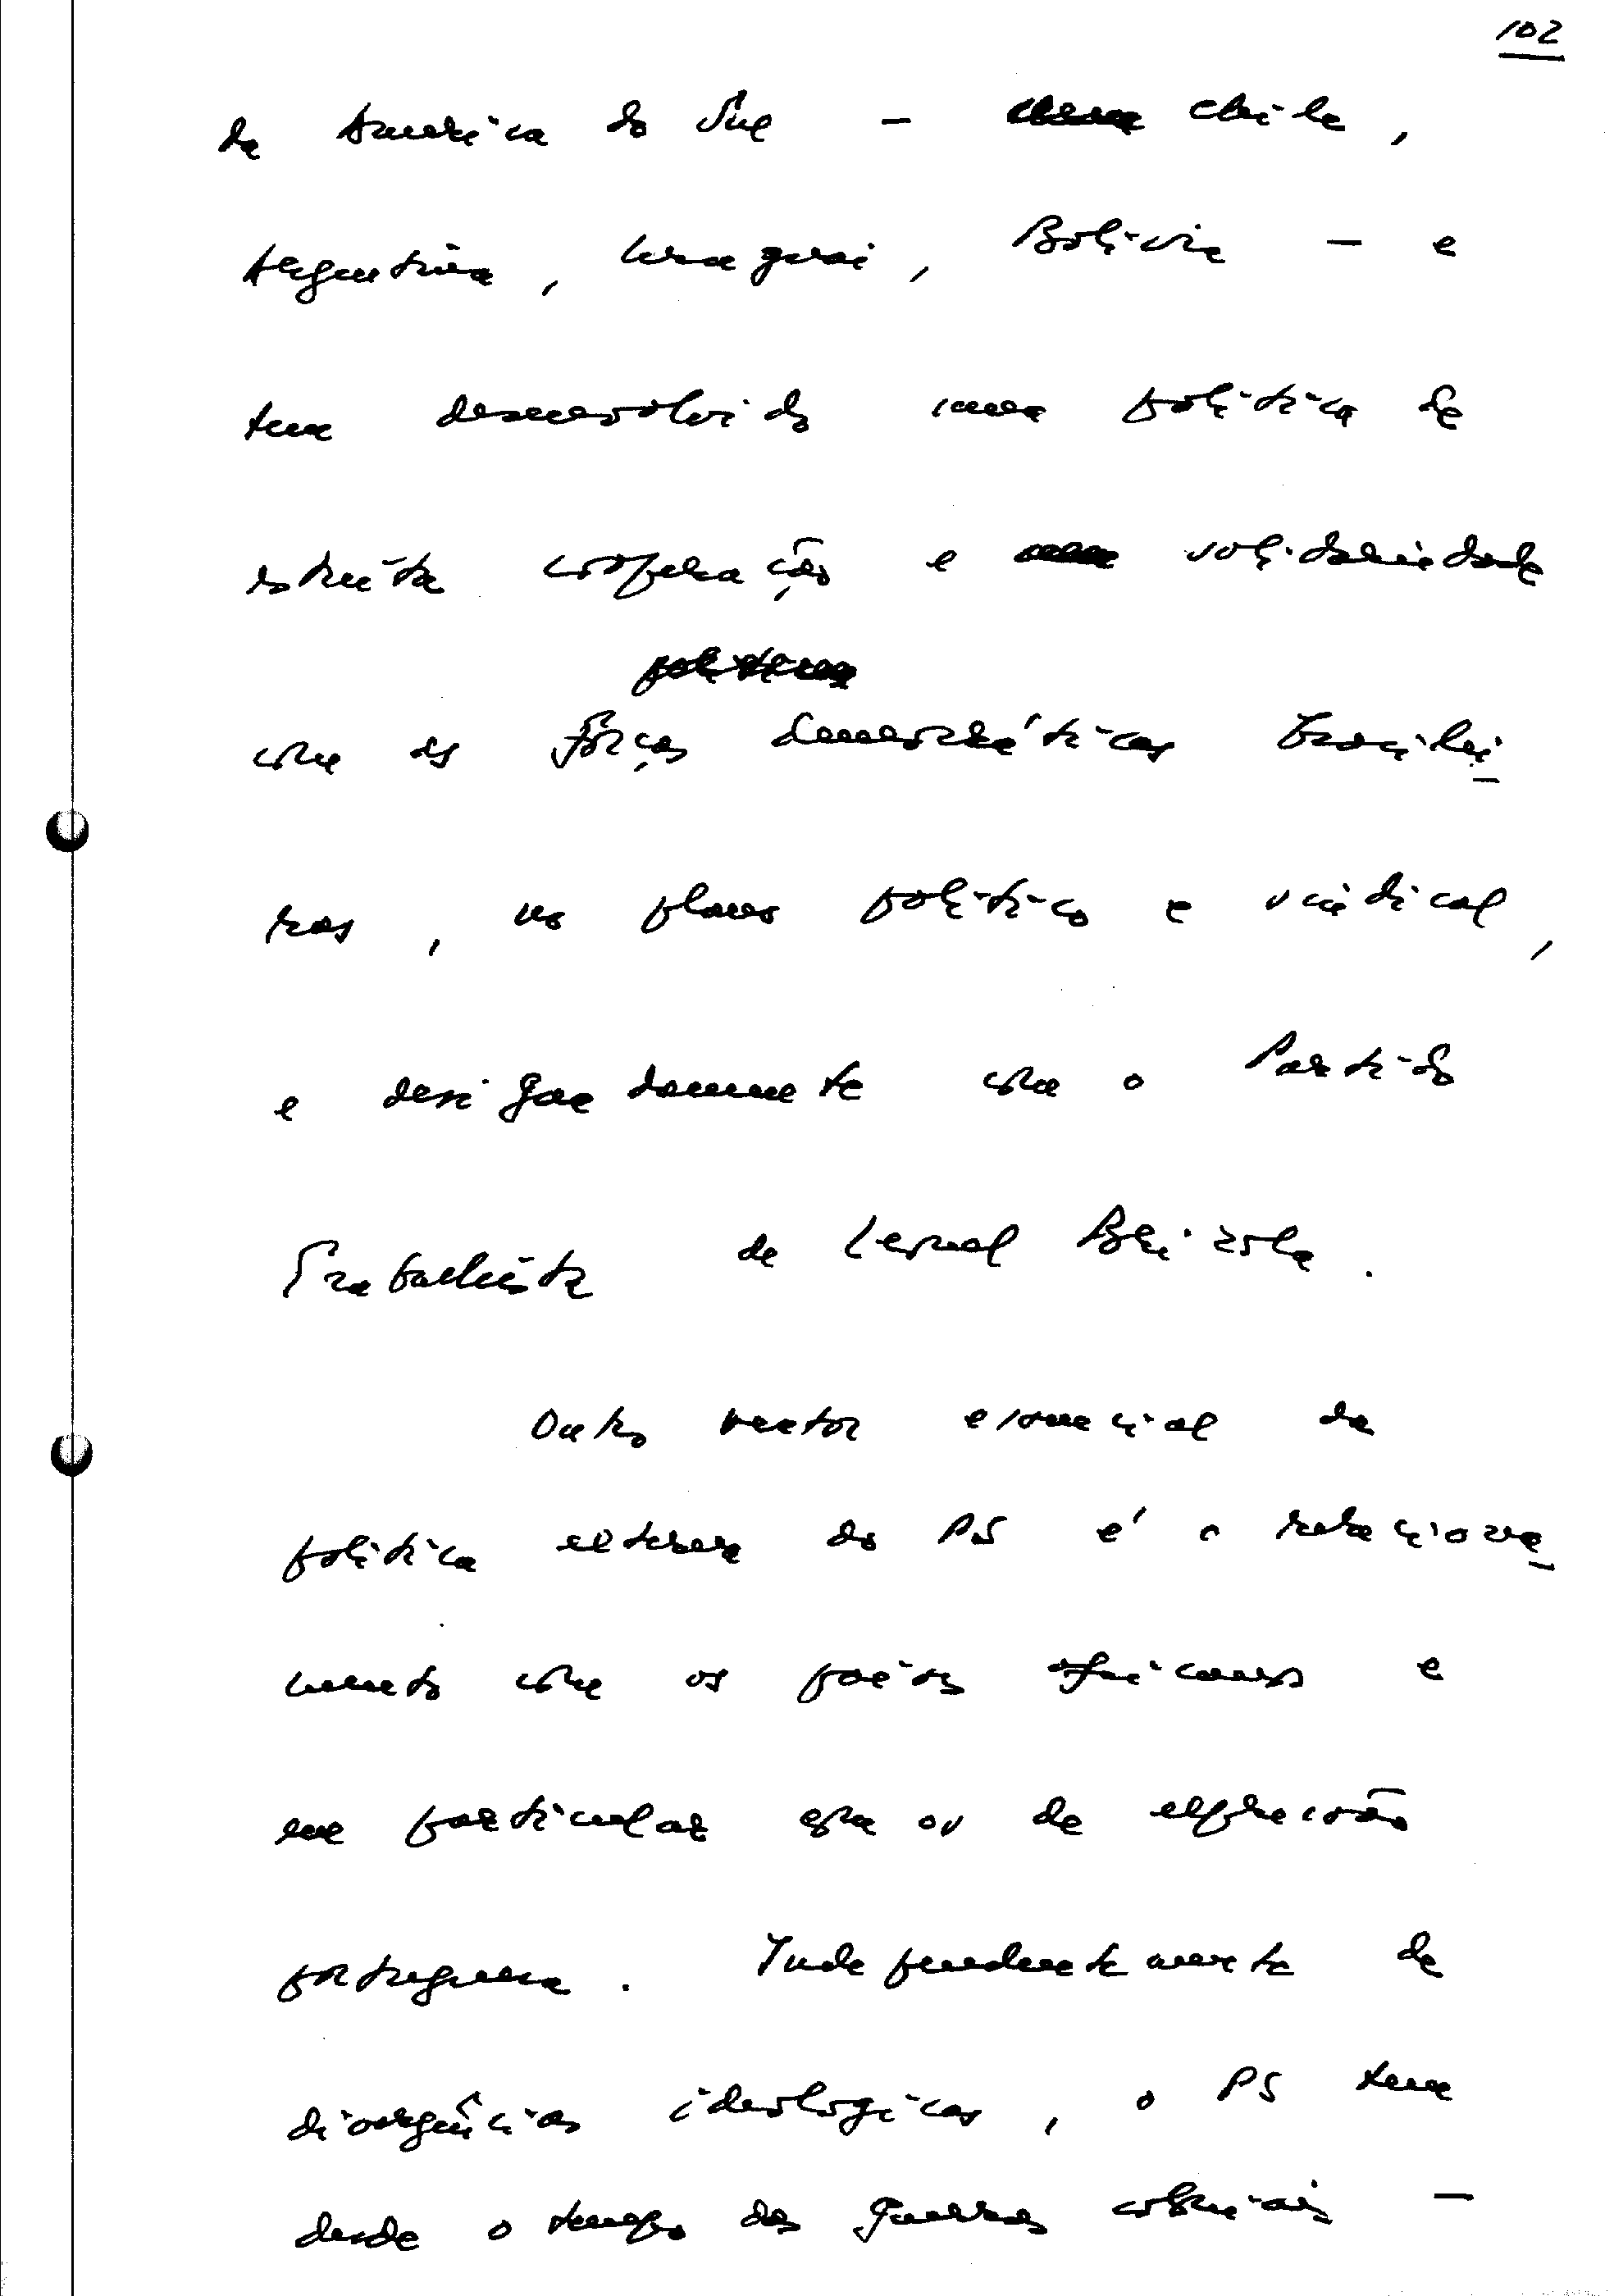 102
da América do Sul - Chile,
Argentina, Uruguai, Bolívia - e
tem desenvolvido uma política de
estreita cooperação e solidariedade
com as fôrças democráticas brasilei-
ras, no plano político e sindical,
e designadamente com o Partido
Trabalhista de Leonel Brizola.
Outro vector essencial da
política externa do PS é o relaciona-
mento com os países africanos e
em particular com os de expressão
portuguesa. Independentemente de
divergências ideológicas, o PS tem
desde o tempo das guerras coloniais -